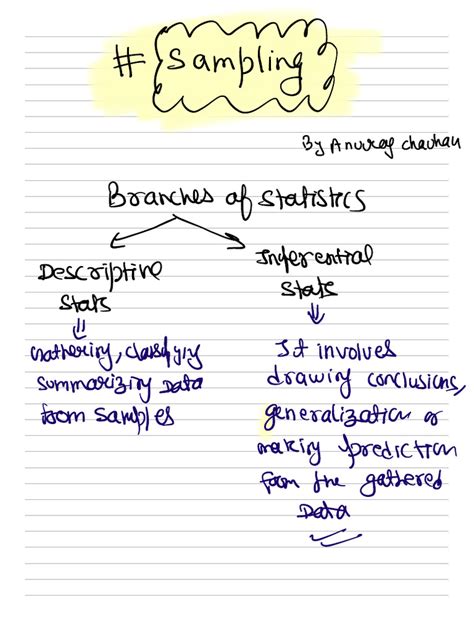 # Sampling
By Anurag Chauhan
Branches of Statistics
Descriptive
Stats
Gathering, classifying
Summarizing Data
from samples
Inferential
Stats
It involves
drawing conclusions,
generalization or
making prediction
from the gathered
Data